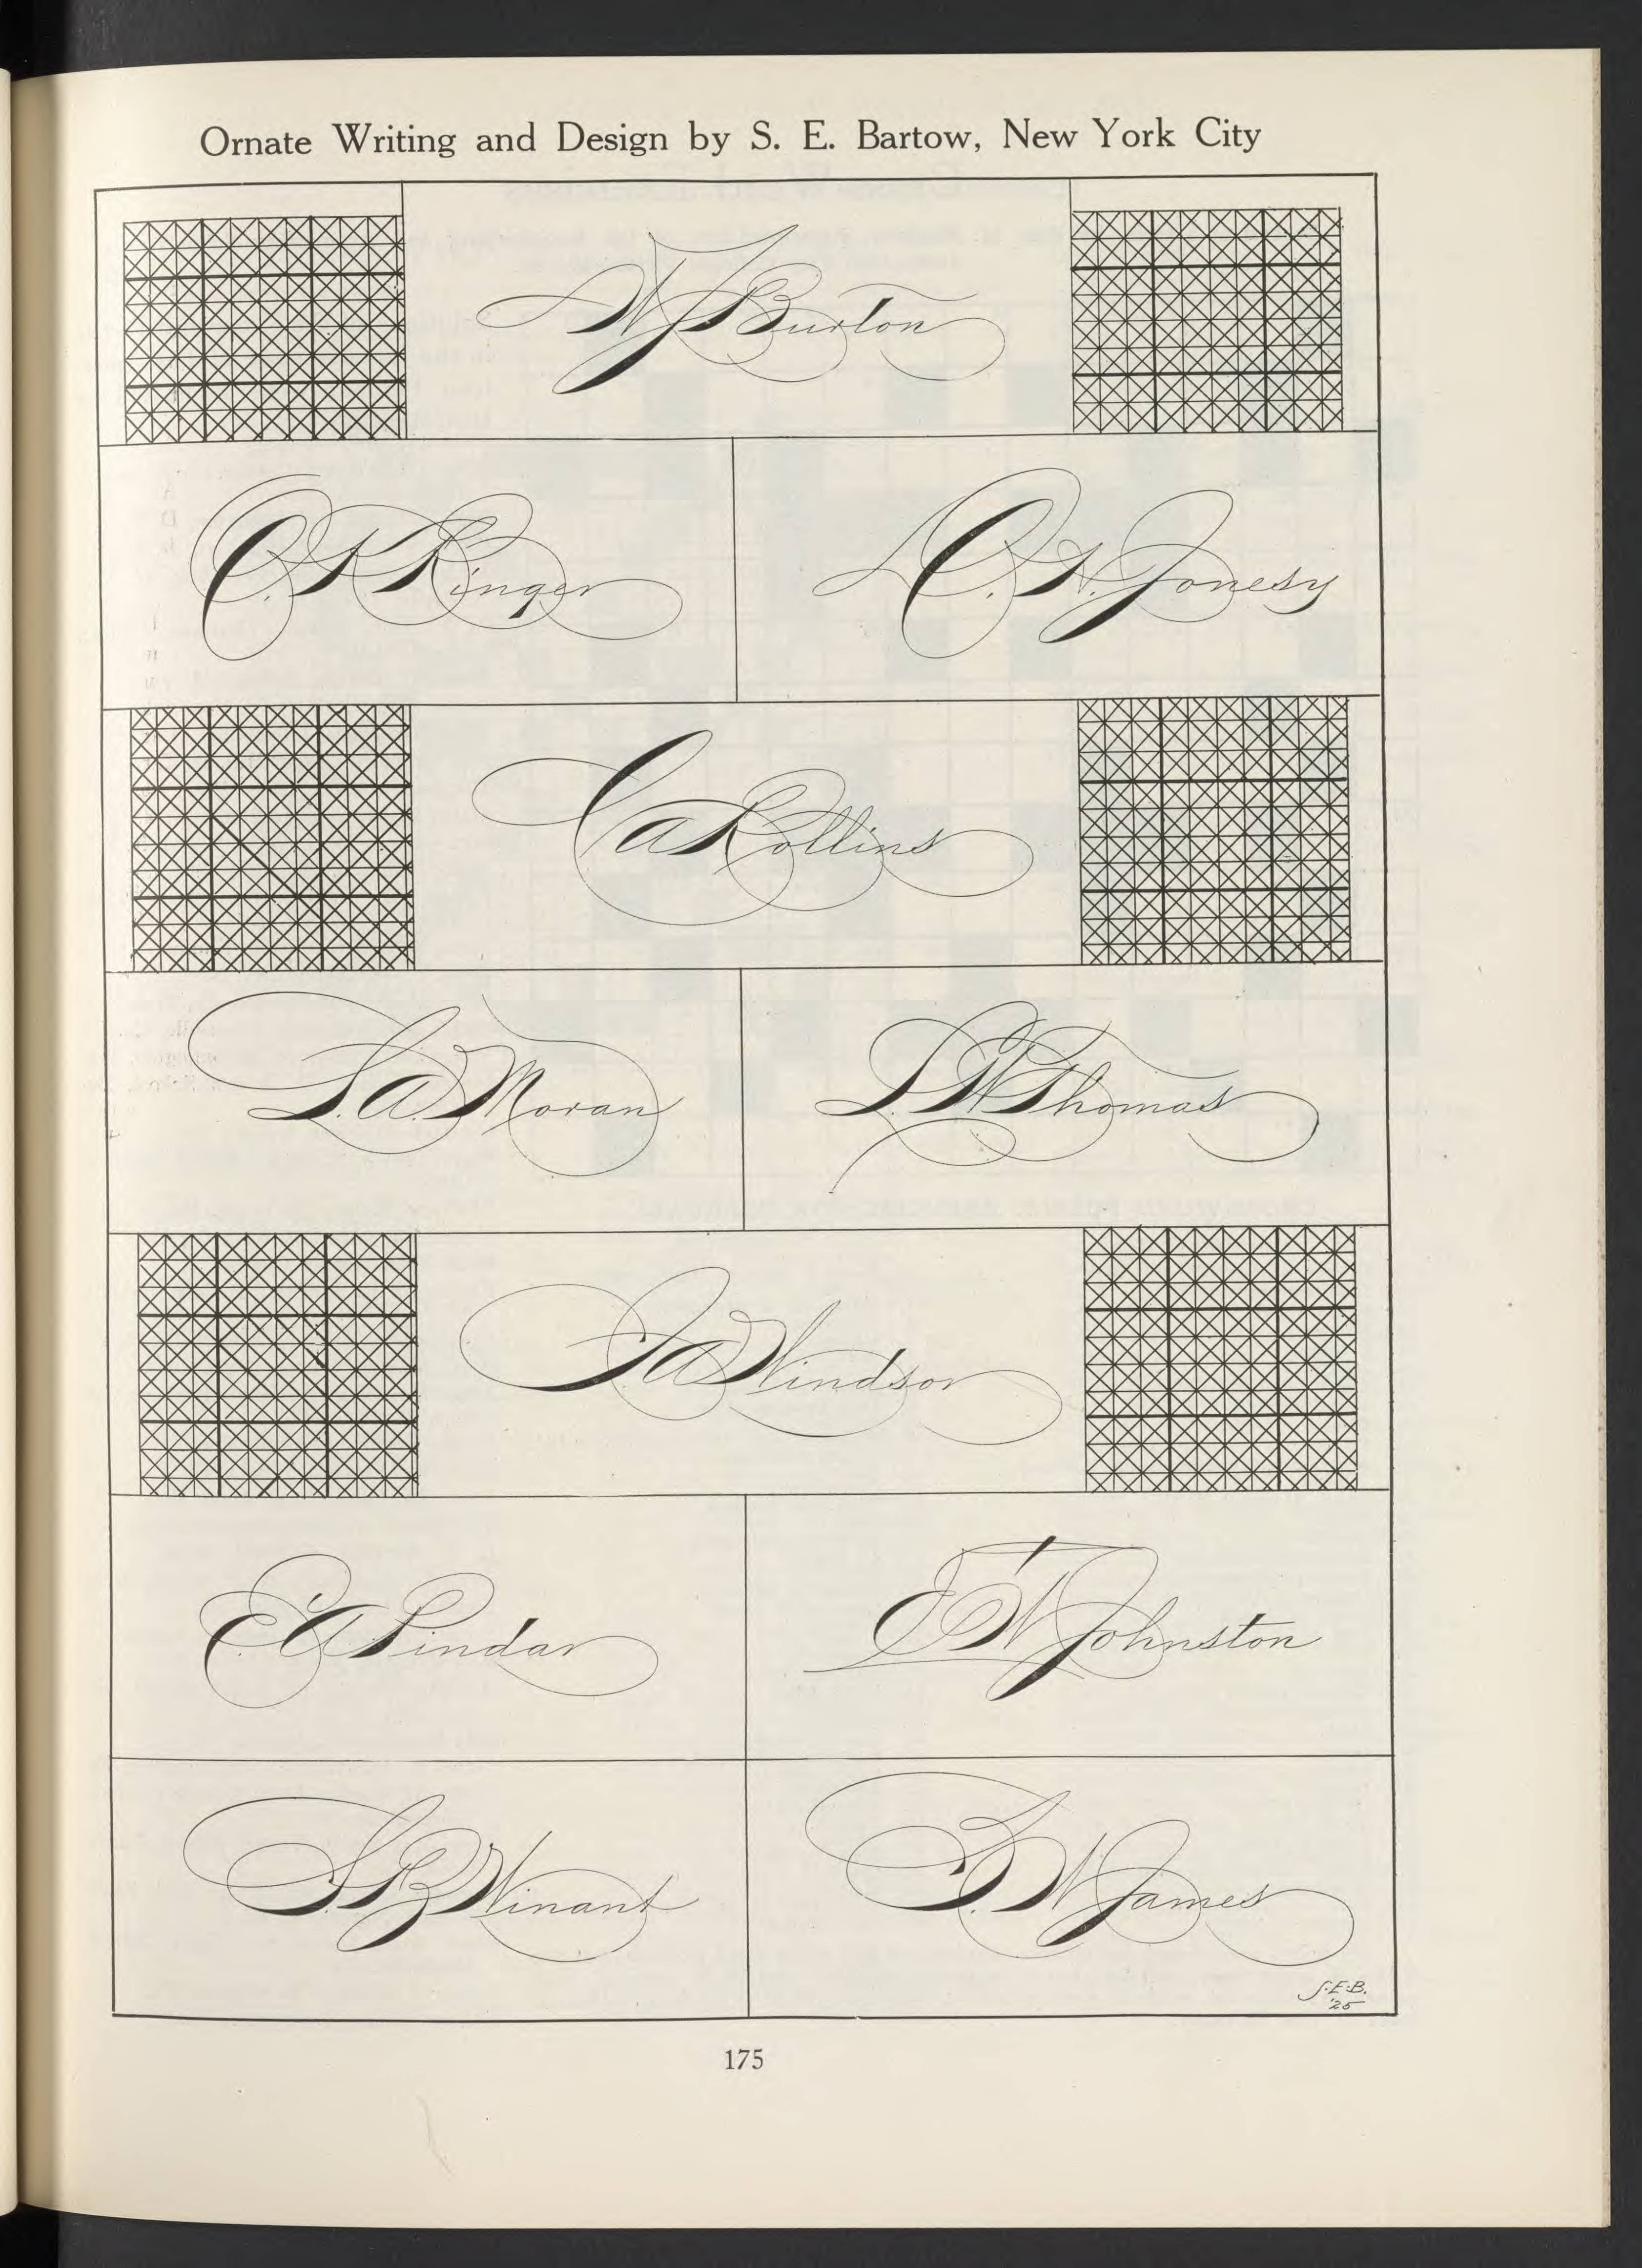 Ornate Writing and Design by S. E. Bartow, New York City
W J Burton
C. K Ringer
C. N. Jonesy
C A Rollins
S. A. Moran
L. W Thomas
S. A Windsor
E. A Pindar
E W Johnston
S. B Winant
T. W James
S.E.B.
'25
175